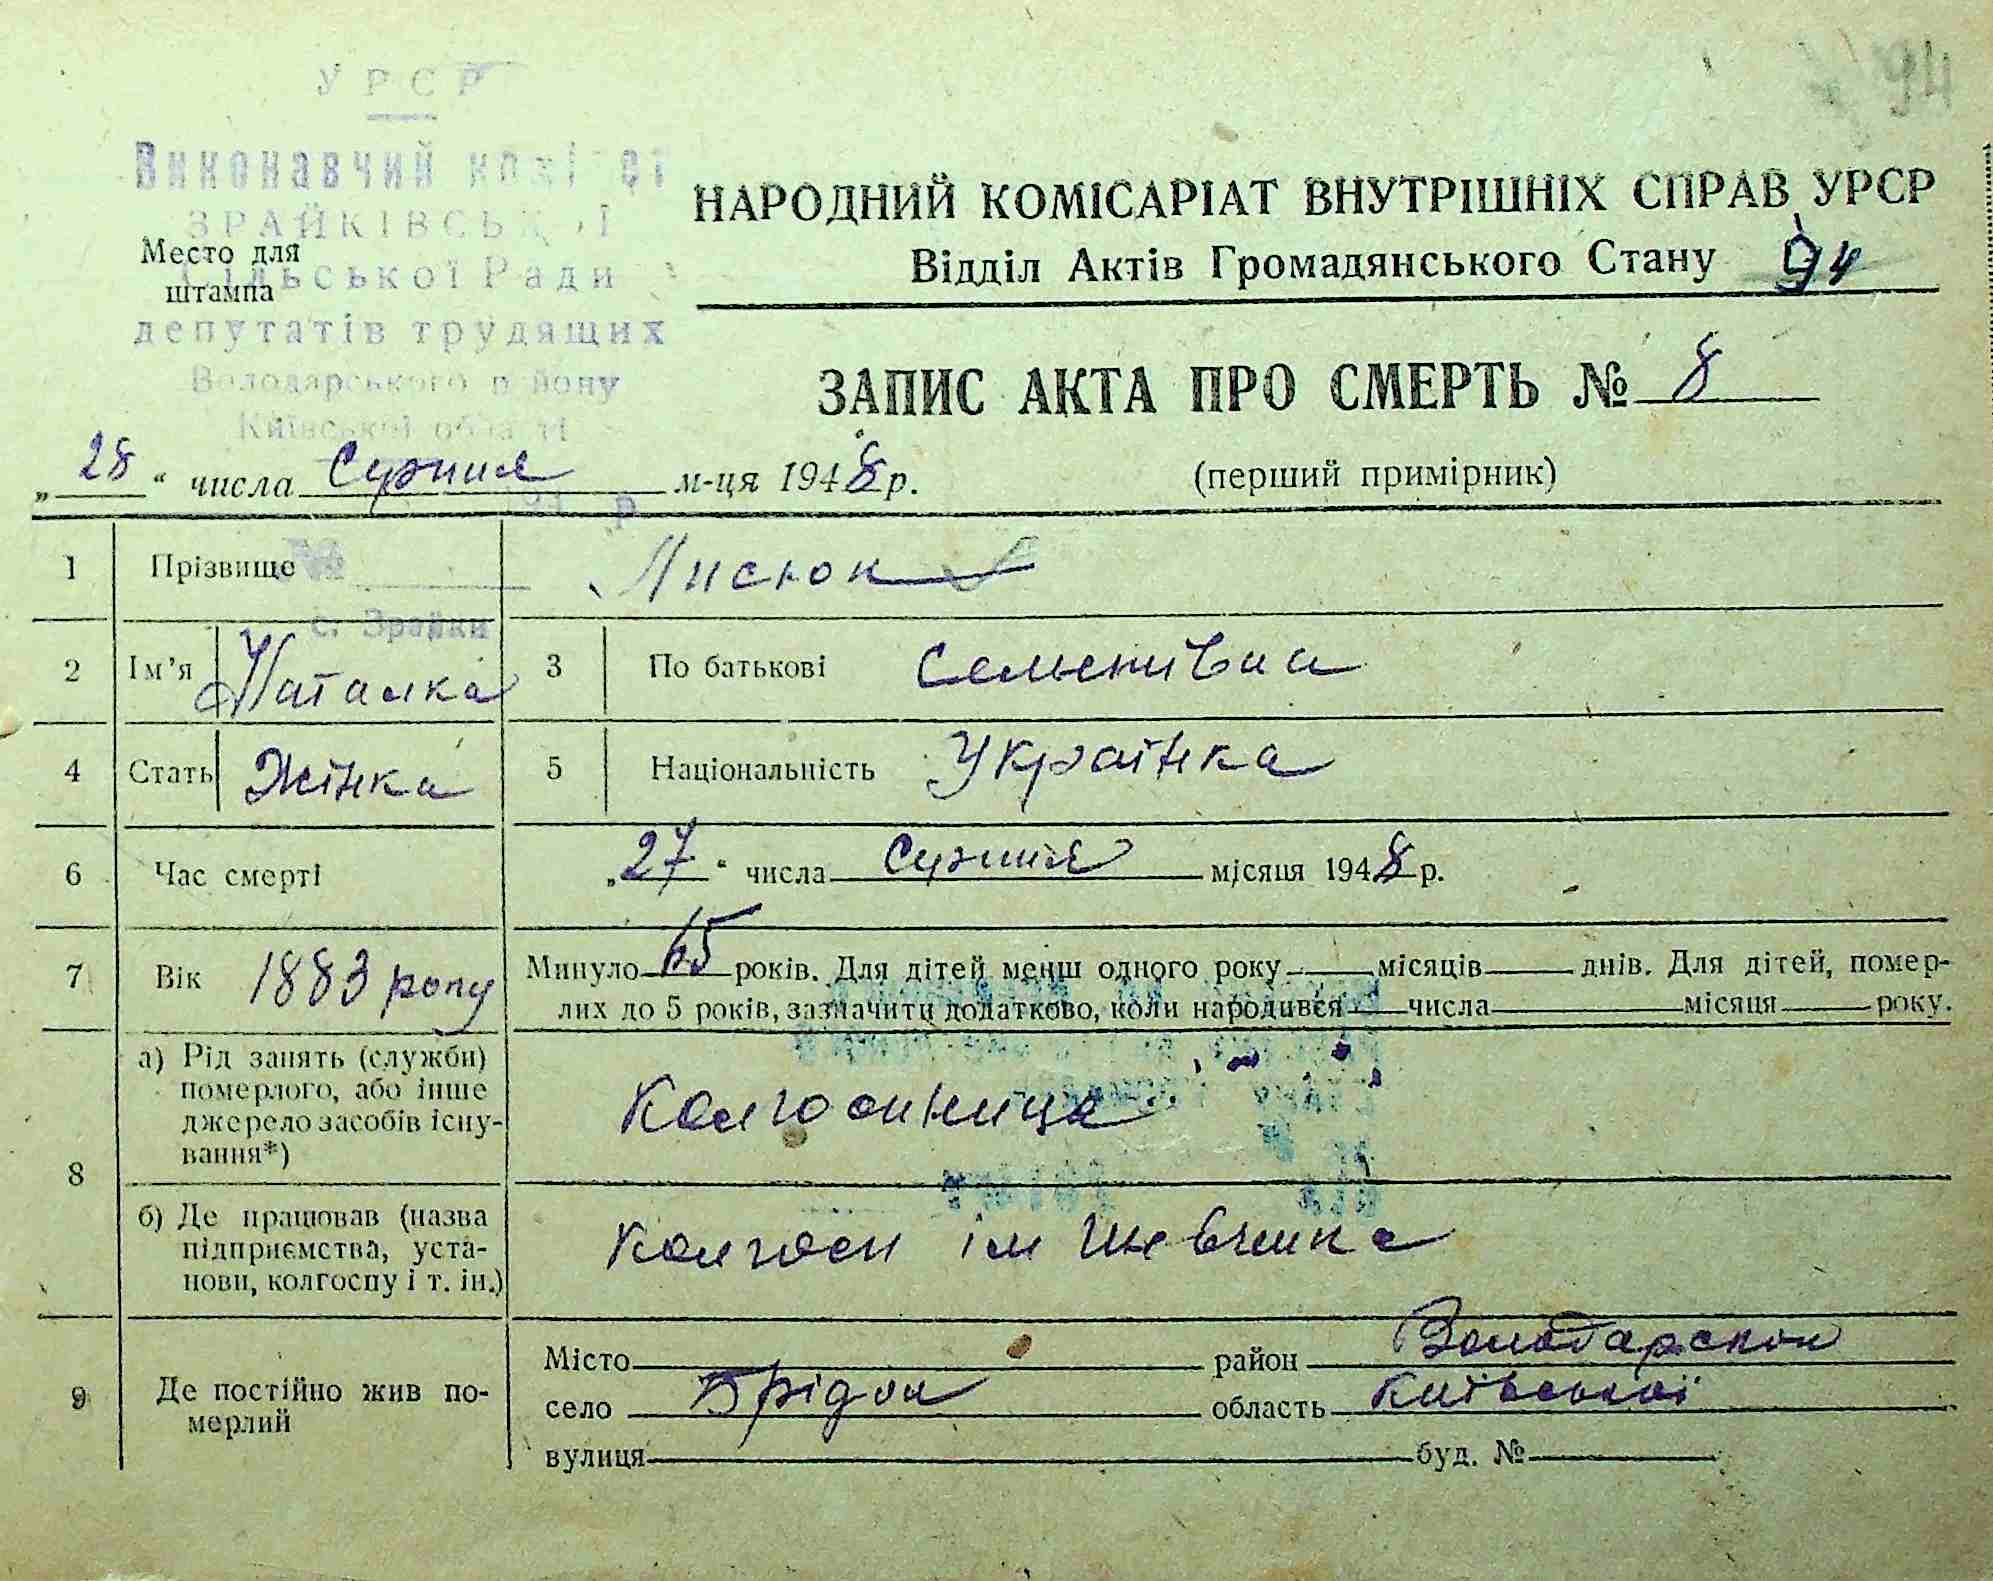 УРСР
Виконавчий комітет
ЗРАЙКІВСЬКОЇ
Сільської Ради
депутатів трудящих
Володарського району
Київської області
Место для
штампа
НАРОДНИЙ КОМІСАРІАТ ВНУТРІШНІХ СПРАВ УРСР
Відділ Актів Громадянського Стану 94
ЗАПИС АКТА ПРО СМЕРТЬ № 8
„28“ числа Серпня м-ця 1948 р.
(перший примірник)
1 Прізвище Лисюк
№
с. Зрайки
2 Ім’я Наталка 3 По батькові Семенівна
4 Стать Жінка 5 Національність Українка
6 Час смерті „27“ числа Серпня місяця 1948 р.
7 Вік 1883 року Минуло 65 років. Для дітей менш одного року місяців днів. Для дітей, помер-
лих до 5 років, зазначити додатково, коли народився числа місяця року.
8 а) Рід занять (служби)
померлого, або інше
джерело засобів існу-
вання*)
Колгосниця
б) Де працював (назва
підприємства, уста-
нови, колгоспу і т. ін.)
Колгосп ім Шевченка
9 Де постійно жив по-
мерлий
Місто район
село область Київської
вулиця буд. №